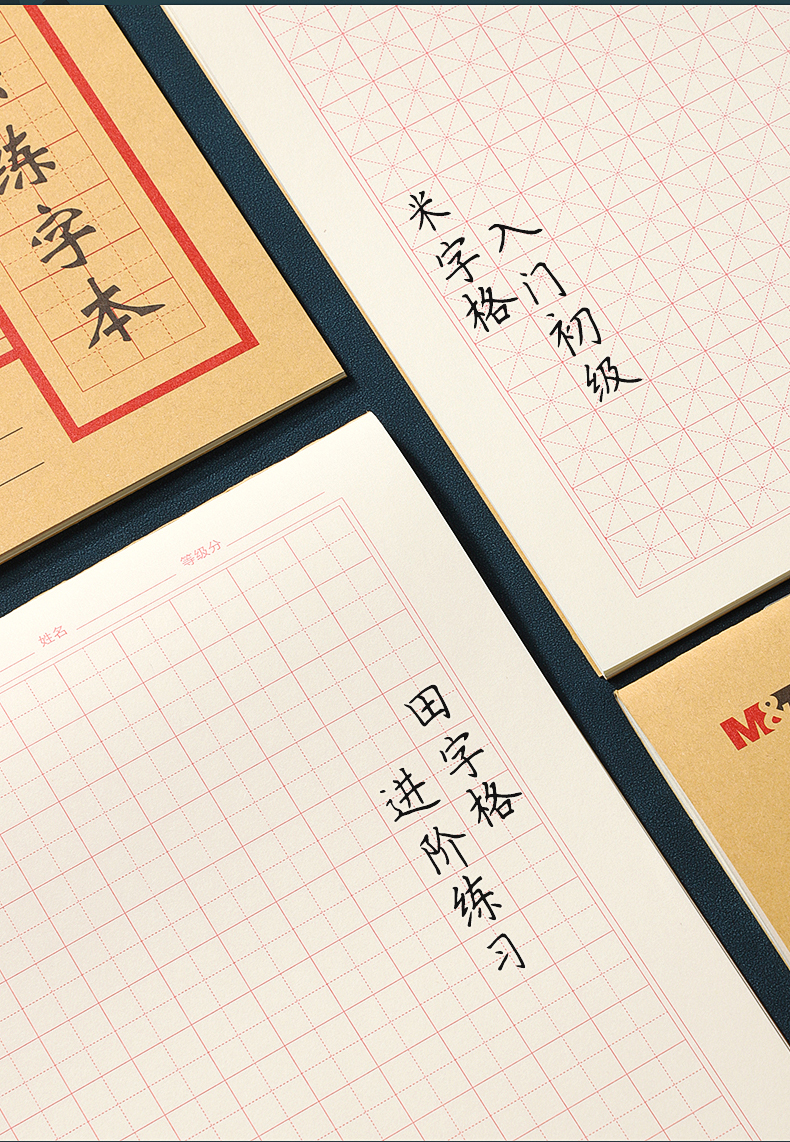 练字本
米字格
入门初级
姓名
等级分
田字格
进阶练习
M&